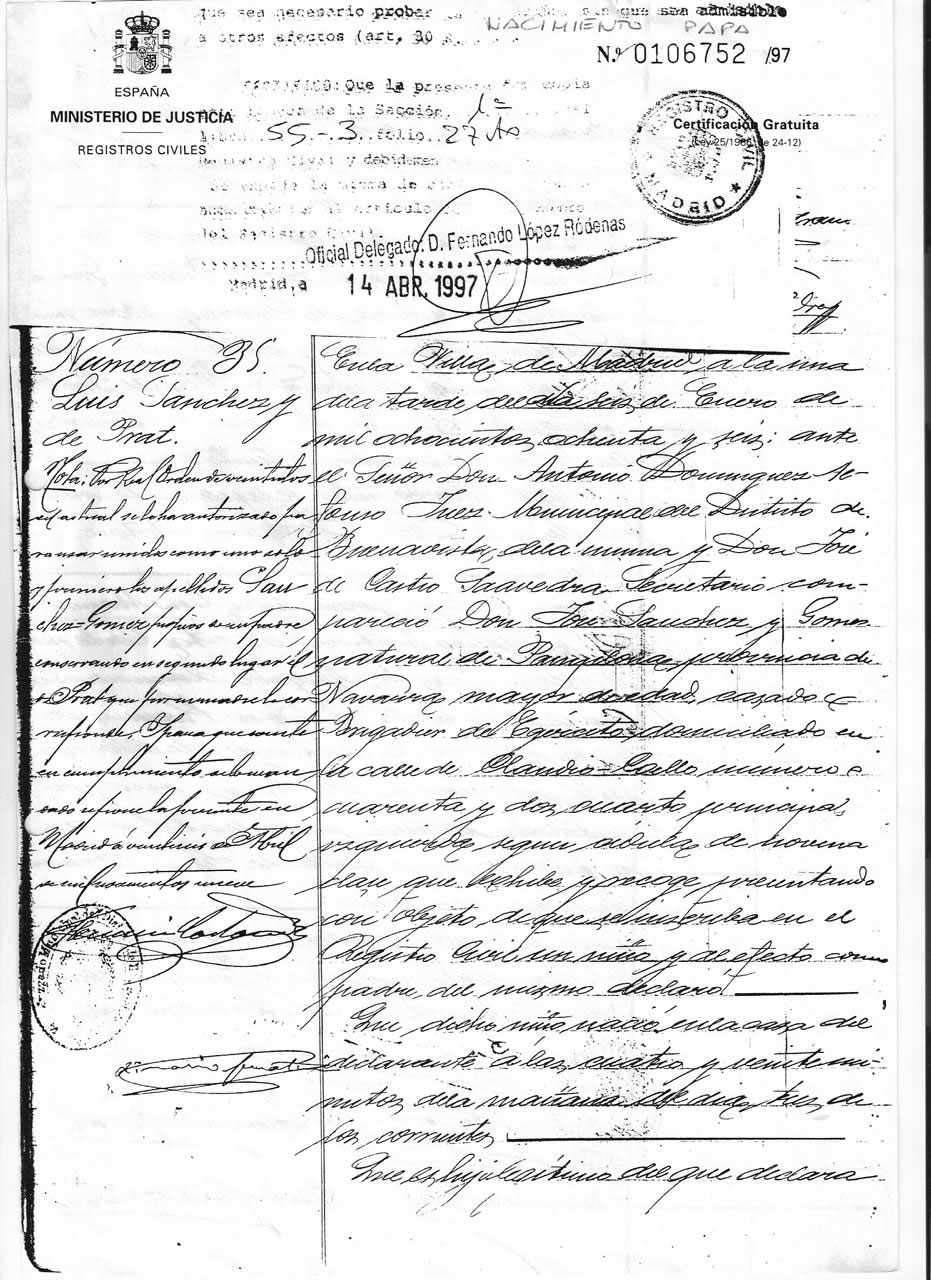 que sea necesario probar sin que sea admisible
a otros efectos (art. 30
NACIMIENTO PAPA
Nº 0106752 /97
ESPAÑA
MINISTERIO DE JUSTICIA
REGISTROS CIVILES
CERTIFICO: Que la presente copia
de la Sección, 1ª
55-3 folio 27
Registro Civil y debidamen
del Registro Civil.
REGISTRO CIVIL
MADRID
Certificación Gratuita
(Ley 25/1986, de 24-12)
Oficial Delegado: D. Fernando López Ródenas
Madrid, a 14 ABR. 1997
Número 35.
Luis Sanchez y
de Prat.
Nota: Por Real Orden de veintitres
del actual se le ha autorizado pa
ra usar unidos como uno solo
y primero los apellidos San
chez-Gomez propios de su padre
conservando en segundo lugar el
de Prat que por su madre le cor
responde. Y para que conste
en cumplimiento de lo man
dado se pone la presente en
Madrid á veintiseis de Abril
de mil novecientos nueve
En la Villa de Madrid, a la una
de la tarde del dia seis de Enero de
mil ochocientos ochenta y seis: ante
el Señor Don Antonio Dominguez Al-
fonso Juez Municipal del Distrito de
Buenavista de la misma y Don José
de Castro Saavedra Secretario com-
pareció Don José Sanchez y Gomez
natural de Pamplona provincia de
Navarra mayor de edad, casado
Brigadier de Egercito, domiciliado en
la calle de Claudio-Coello número
cuarenta y dos cuarto principal
izquierda segun cedula de novena
clase que exhibe y recoge presentando
con objeto de que se inscriba en el
Registro Civil un niño y al efecto como
padre del mismo declaró
Que dicho niño nació en la casa del
declarante á las cuatro y veinte mi-
nutos de la mañana del dia tres de
los corrientes
Que es hijo legitimo del que declara